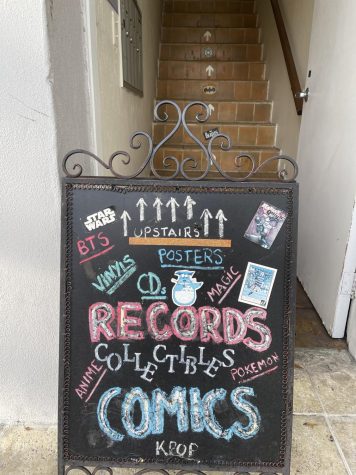 STAR WARS
UPSTAIRS
BTS
POSTERS
VINYLS
CDs
MAGIC
RECORDS
COLLECTIBLES
ANIME
POKEMON
COMICS
KPOP